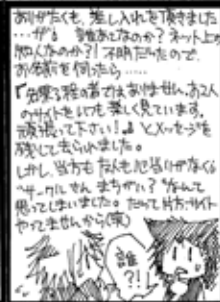 ありがたくも、差し入れを頂きました
…が。誰あとなのか?ネット上の
知人なのか?!不明だったので、
お名前を伺ったら……
る者ではありません。お2人
のサイトをいつも楽しく見ています。
頑張って下さい!』とメッセージを
残して去られました。
しかし、当方もなんも心当りがなく
"サークルさんまちがい?"なんて
思ってしまいました。だって片方サイト
やってませんから(笑)
誰?!